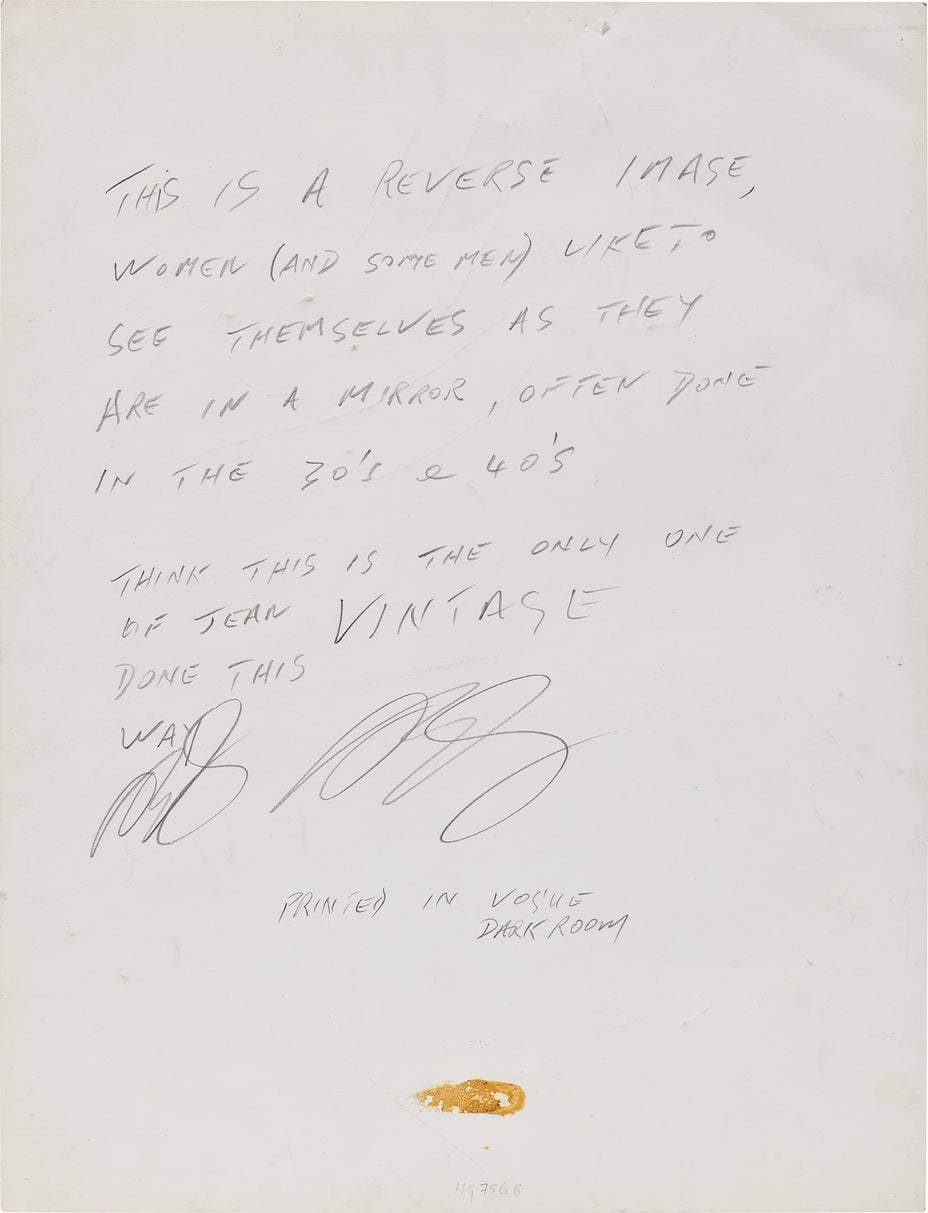 THIS IS A REVERSE IMAGE,
WOMEN (AND SOME MEN) LIKE TO
SEE THEMSELVES AS THEY
ARE IN A MIRROR, OFTEN DONE
IN THE 30'S & 40'S
THINK THIS IS THE ONLY ONE
OF JEAN VINTAGE
DONE THIS
WAY
PRINTED IN VOGUE
DARK ROOM